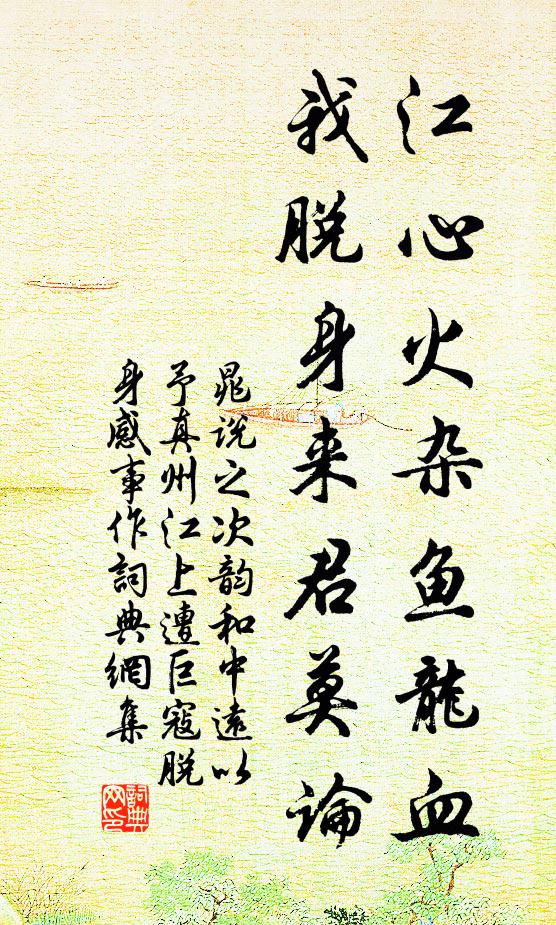 江心火杂鱼龍血
我脱身来君莫論
晁说之次韵和中遠以
予真州江上遭巨寇脱
身感事作詞典網集
詞典
网印